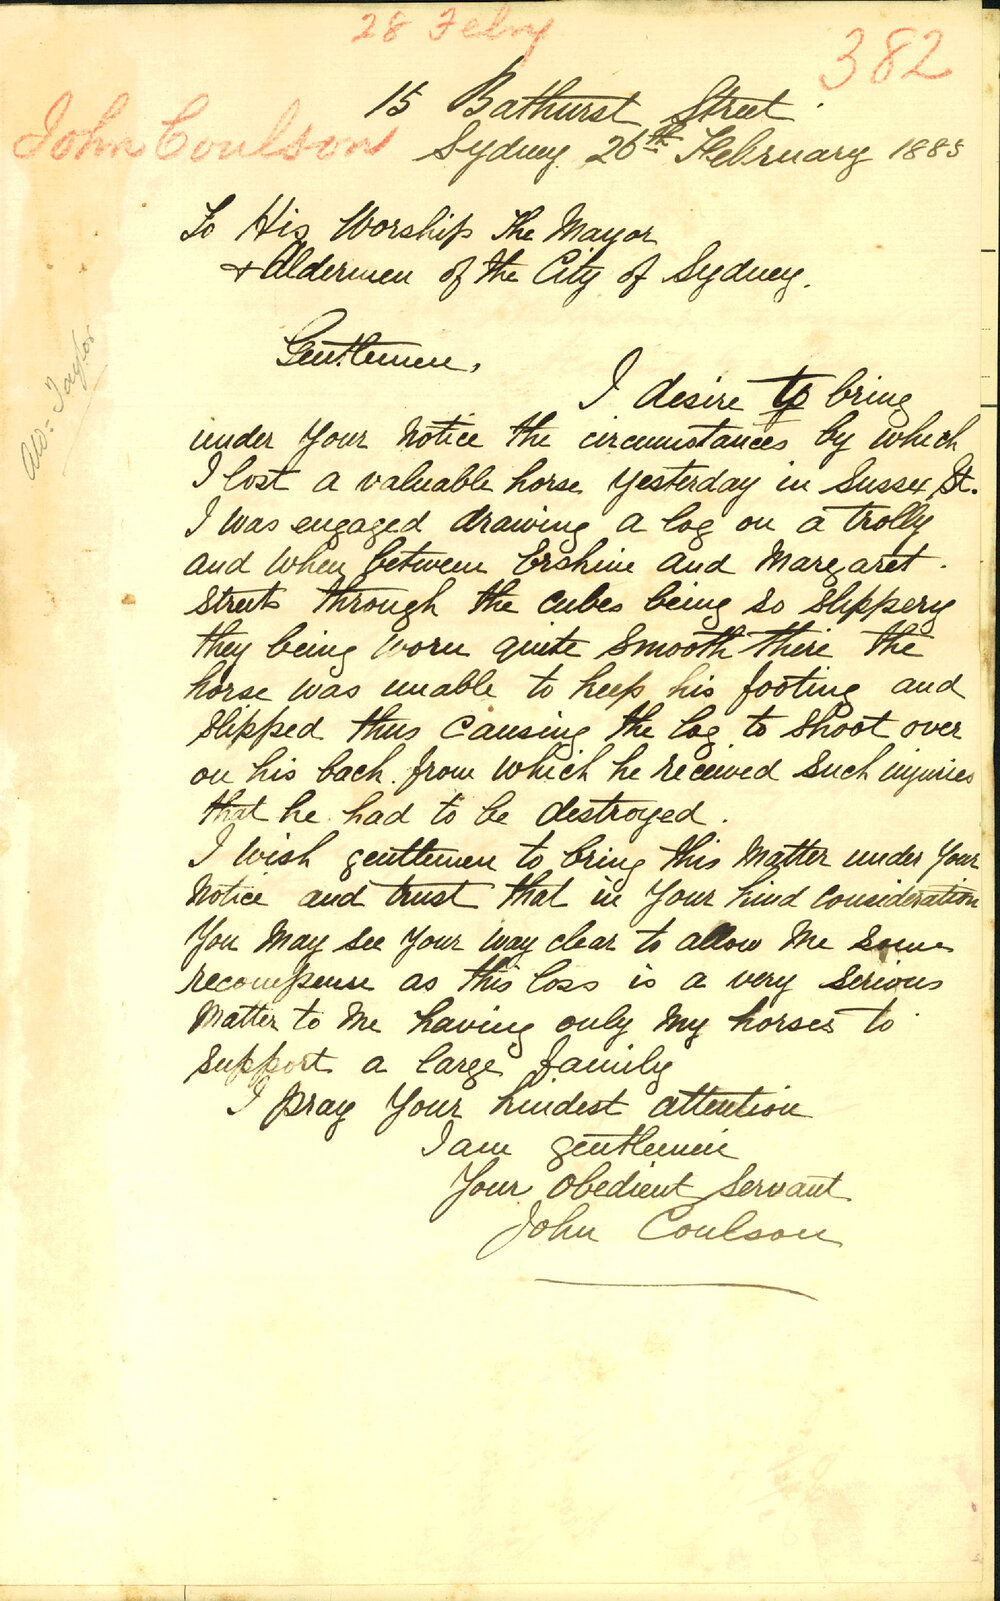 28 Febry
382
John Coulson
15 Bathurst Street
Sydney 26th February 1885
To His Worship The Mayor
& Aldermen of the City of Sydney.
Gentlemen,
I desire to bring
under Your Notice the circumstances by which
I lost a valuable horse yesterday in Sussex St.
I was engaged drawing a log on a trolly
and when between Erskine and Margaret
Streets through the cubes being so slippery
they being worn quite smooth there the
horse was unable to keep his footing and
slipped thus causing the log to shoot over
on his back from which he received such injuries
that he had to be destroyed.
I wish gentlemen to bring this Matter under Your
Notice and trust that in Your kind consideration
You May see Your way clear to allow Me some
recompense as this loss is a very serious
Matter to Me having only My horses to
support a large family
I pray Your kindest attention
I am gentlemen
Your Obedient Servant
John Coulson
Taylor